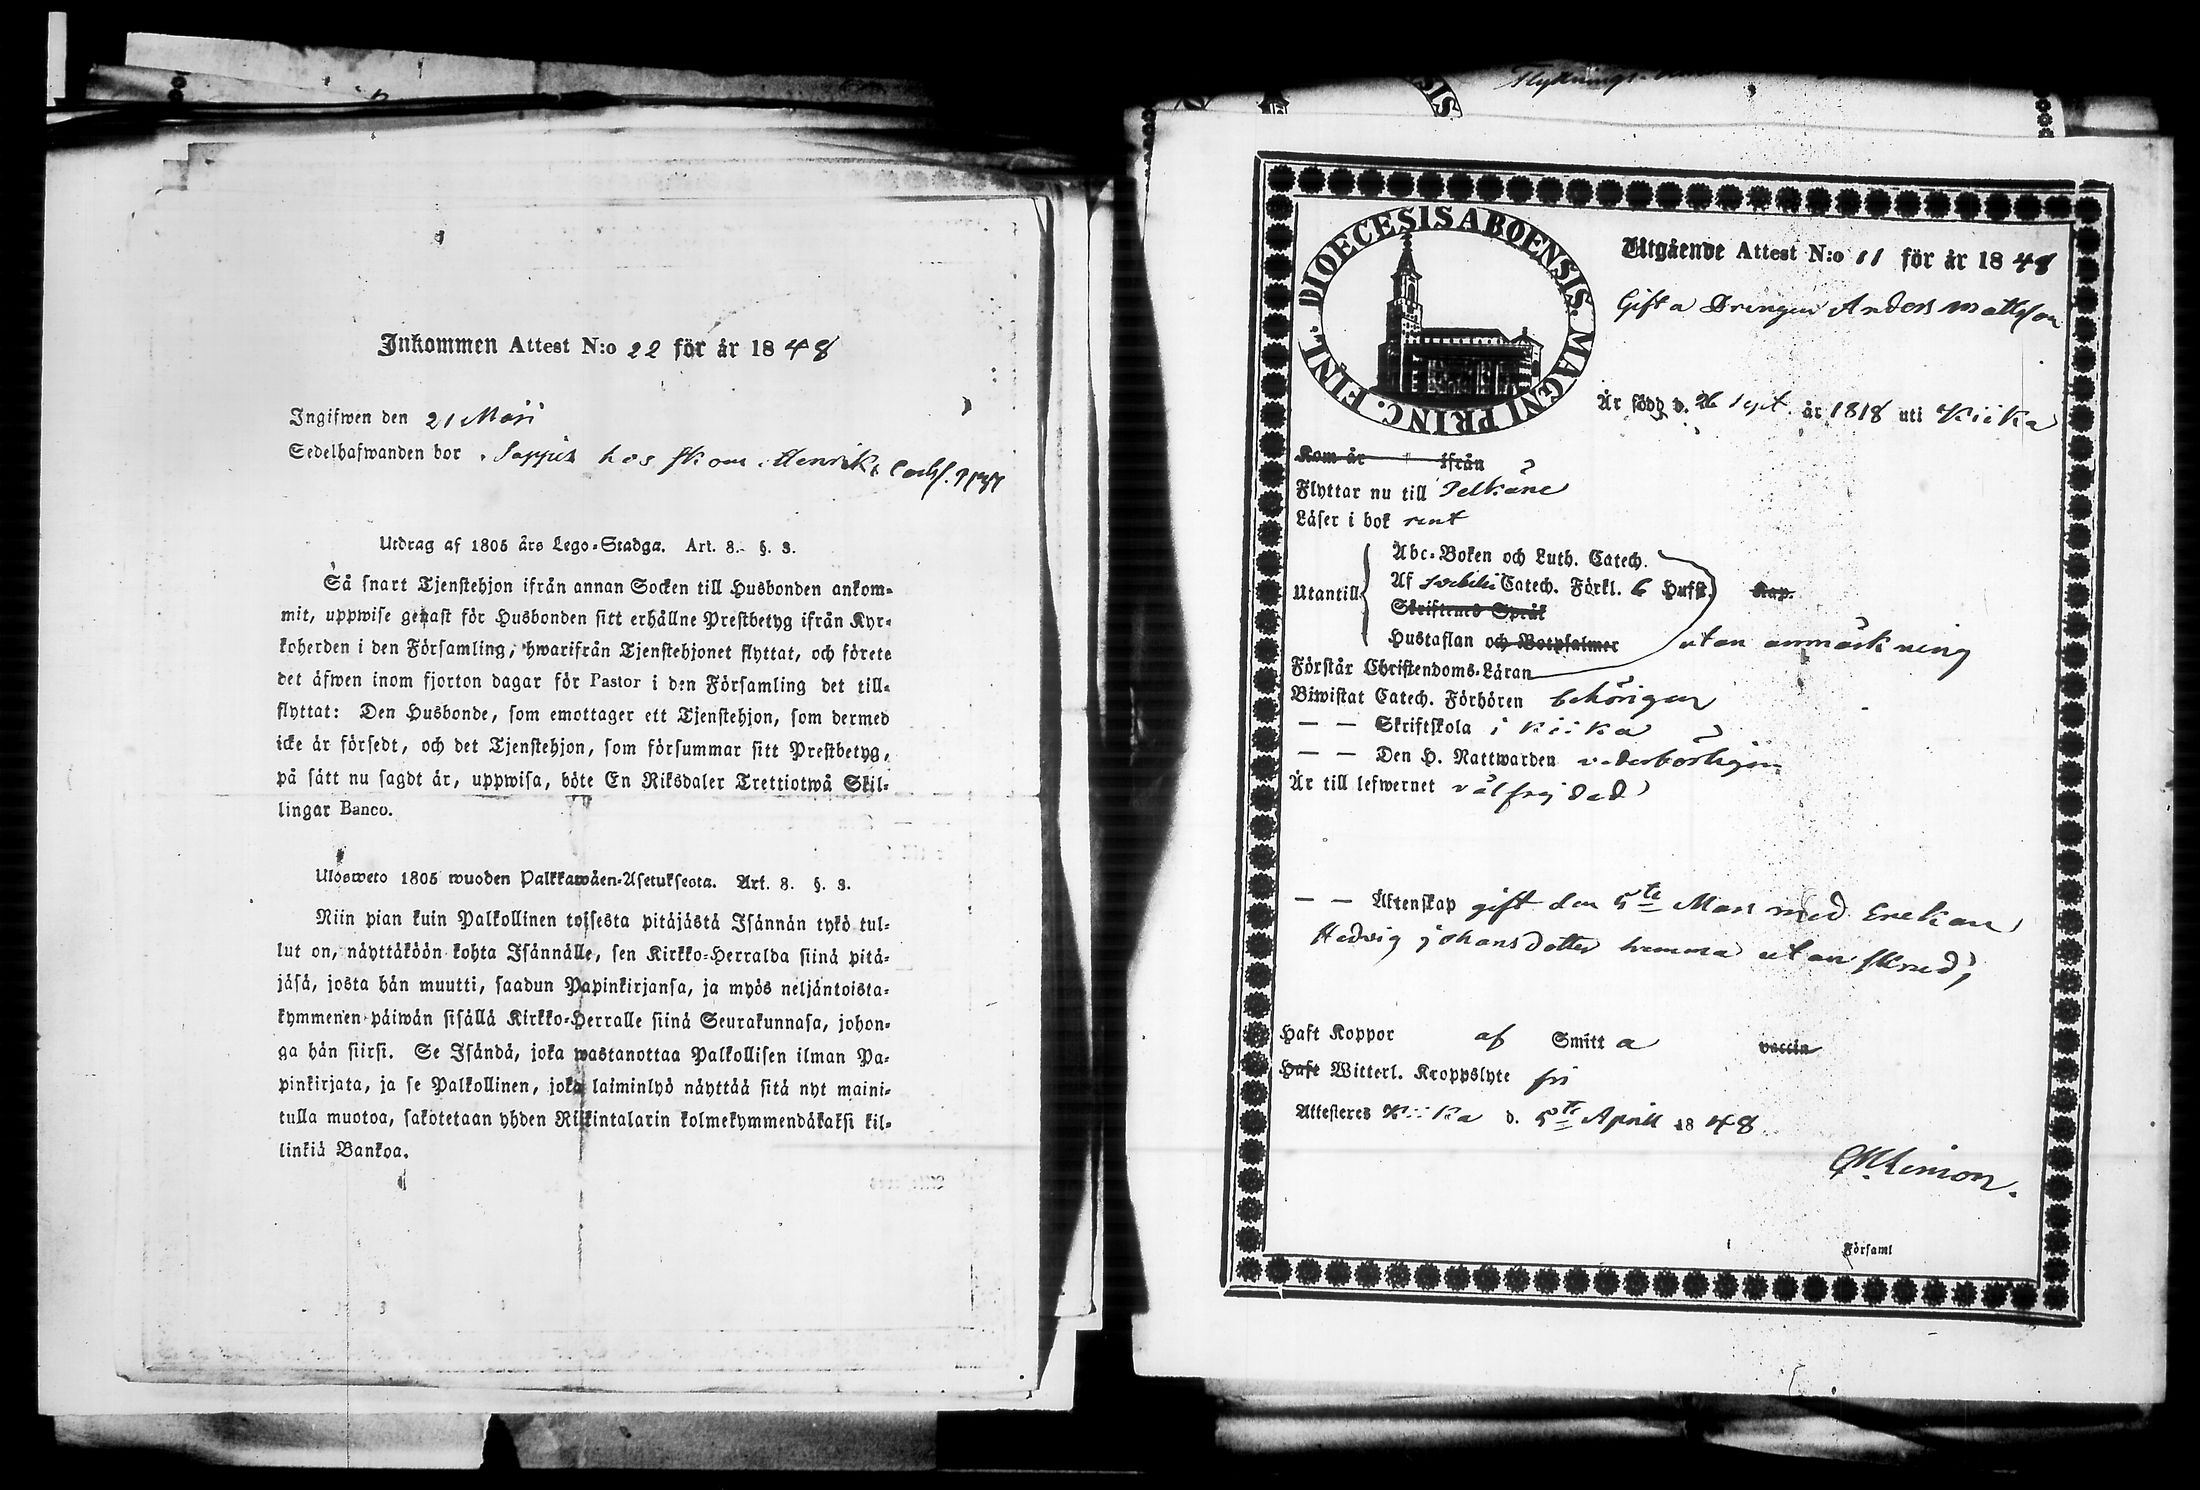 Inkommen Attest N:o 22 för år 1848
Ingifwen den 21 Maji
Sedelhafwanden bor hos
Utdrag af 1805 års Lego-Stadga. Art. 8. §. 3.
Så snart Tjenstehjon ifrån annan Socken till Husbonden ankom-
mit, uppwise genast för Husbonden sitt erhållne Prestbetyg ifrån Kyr-
koherden i den Församling, hwarifrån Tjenstehjonet flyttat, och förete
det äfwen inom fjorton dagar för Pastor i den Församling det till-
flyttat: Den Husbonde, som emottager ett Tjenstehjon, som dermed
icke är försedt, och det Tjenstehjon, som försummar sitt Prestbetyg,
på sätt nu sagdt är, uppwisa, böte En Riksdaler Trettiotwå Skil-
lingar Banco.
Ulosweto 1805 wuoden Palkkawäen-Asetuksesta. Art. 8. §. 3.
Niin pian kuin Palkollinen toisesta pitäjästä Isännän tykö tul-
lut on, näyttäköön kohta Isännälle, sen Kirkko-Herralda siinä pitä-
jäsä, josta hän muutti, saadun Papinkirjansa, ja myös neljäntoista-
kymmenen päiwän sisällä Kirkko-Herralle siinä Seurakunnasa, johon-
ga hän siirsi. Se Isändä, joka wastanottaa Palkollisen ilman Pa-
pinkirjata, ja se Palkollinen, joka laiminlyö näyttää sitä nyt maini-
tulla muotoa, sakotetaan yhden Riikintalarin kolmekymmendäkaksi kil-
linkiä Bankoa.
DIOECESIS ABOENSIS. MAGNI PRINC. FINL.
Utgående Attest N:o 11 för år 1848
Gifta Drengen Anders Mattsson
Är född d. 26 Sept. år 1818 uti Kiika
Kom år ifrån
Flyttar nu till Pelkäne
Läser i bok rent
Utantill
Abc-Boken och Luth. Catech.
Af Svebelii Catech. Förkl. 6 Hufst. Kap.
Skriftenes Språk
Hustaflan och Botpsalmer utan anmärkning
Förstår Christendoms-Läran
Biwistat Catech. Förhören behörigen
— — Skriftskola i Kiika
— — Den H. Nattwarden vederbörligen
Är till lefwernet välfrejdad
— — Äktenskap gift den 5te Mars med Enekan
Hedvig Johansdotter hemma utan
Haft Koppor af Smitta vaccin
Haft Witterl. Kroppslyte fri
Attesteres Kiika d. 5te April 1848
Församl